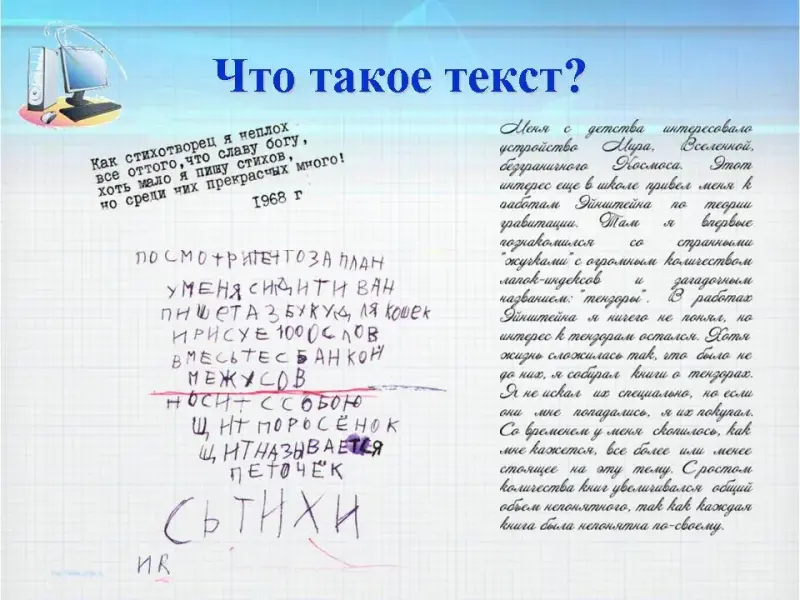 Что такое текст?
Как стихотворец я неплох
все оттого,что славу богу,
хоть мало я пишу стихов,
но среди них прекрасных много!
1968 г
ПОСМОТРИТЕ ЧТО ЗА ПЛАН
УМЕНЯ СИДИТ ИВАН
ПИШЕТ АЗБУКУ ДЛЯ КОШЕК
И РИСУЕ 1000 СЛОВ
ВМЕСЬТЕ С БАНКОЙ
МЕЖУСОВ
НОСИТ С СОБОЮ
ЩИТ ПОРОСЁНОК
ЩИТ НАЗЫВАЕТСЯ
ПЕТОЧЁК
СЬТИХИ
ИК
Меня с детства интересовало
устройство Мира, Вселенной,
безграничного Космоса. Этот
интерес еще в школе привел меня к
работам Эйнштейна по теории
гравитации. Там я впервые
познакомился со странными
"жучками" с огромным количеством
лапок-индексов и загадочным
названием: "тензоры". В работах
Эйнштейна я ничего не понял, но
интерес к тензорам остался. Хотя
жизнь сложилась так, что было не
до них, я собирал книги о тензорах.
Я не искал их специально, но если
они мне попадались, я их покупал.
Со временем у меня скопилось, как
мне кажется, все более или менее
стоящее на эту тему. С ростом
количества книг увеличивался общий
объем непонятного, так как каждая
книга была непонятна по-своему.